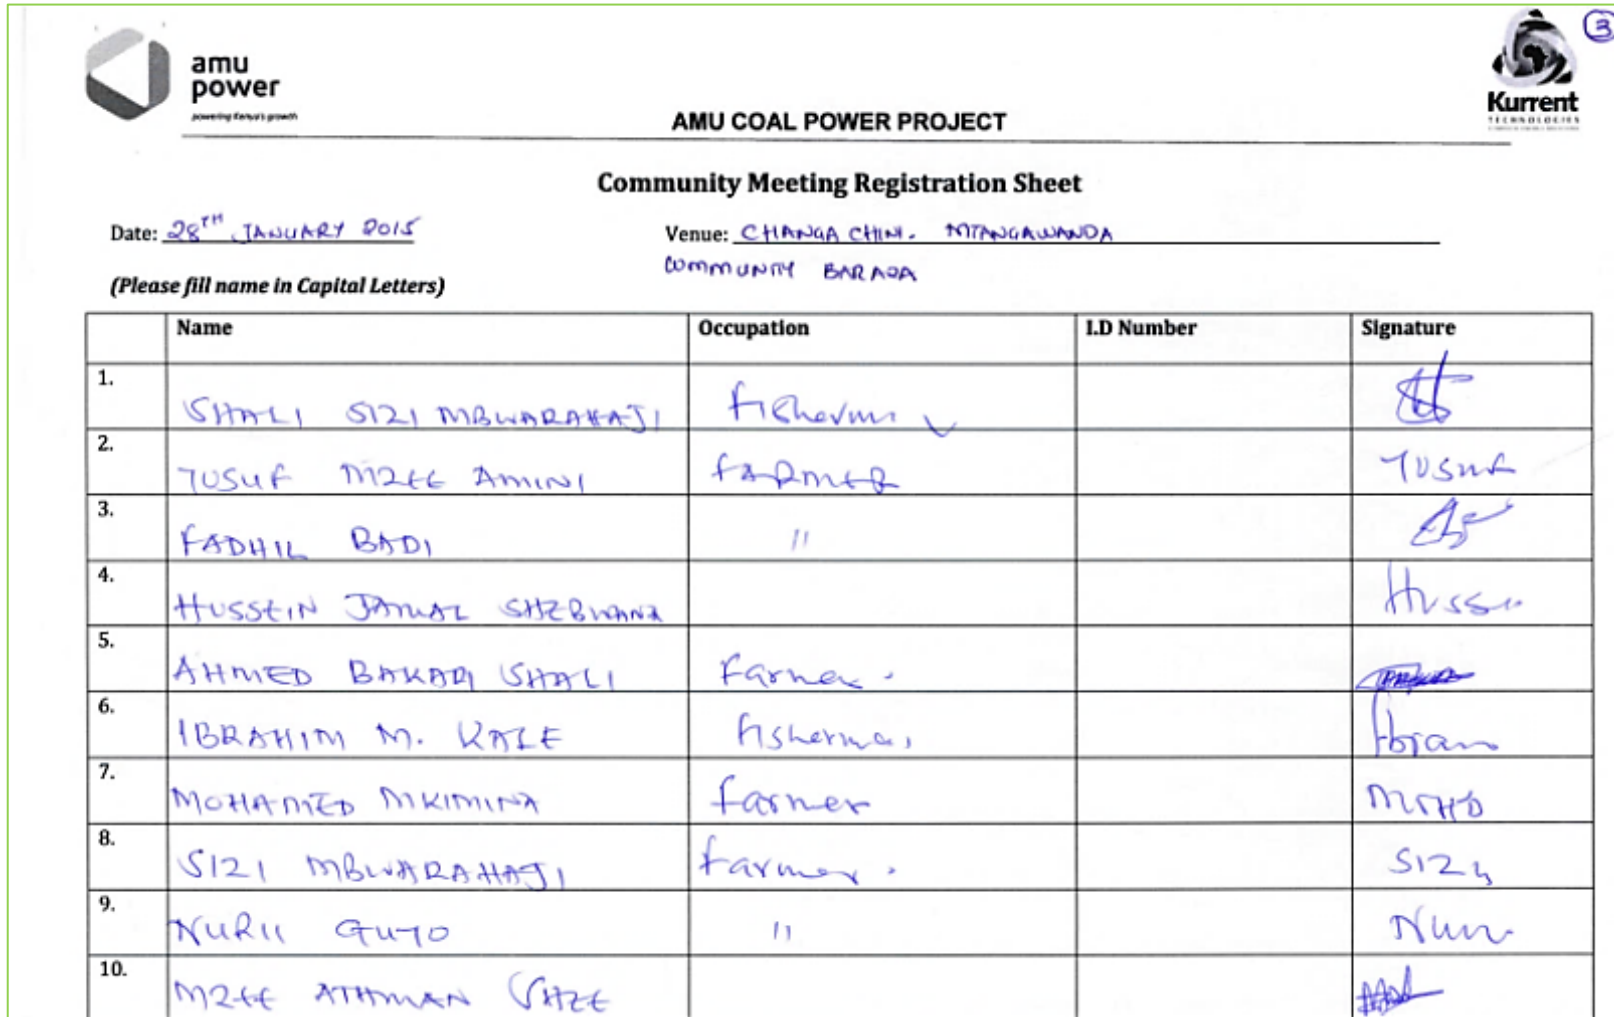 3
amu
power
powering Kenya's growth
Kurrent
TECHNOLOGIES
AMU COAL POWER PROJECT
Community Meeting Registration Sheet
Date: 28TH JANUARY 2015 Venue: CHANGA CHINI. MTANGAWANDA
COMMUNITY BARAZA
(Please fill name in Capital Letters)
Name Occupation I.D Number Signature
1. SHALI SIZI MBWARAHAJI fisherman
2. YUSUF MZEE AMINI FARMER YUSUF
3. FADHIL BADI "
4. HUSSEIN JAMAL SHEBWANA Husse
5. AHMED BAKARI SHALI Farmer.
6. IBRAHIM M. KALE fisherman
7. MOHAMED MKIMINA farmer MOHD
8. SIZI MBWARAHAJI farmer. SIZI
9. NURII GUYO " Nuru
10. MZEE ATHMAN SHEE